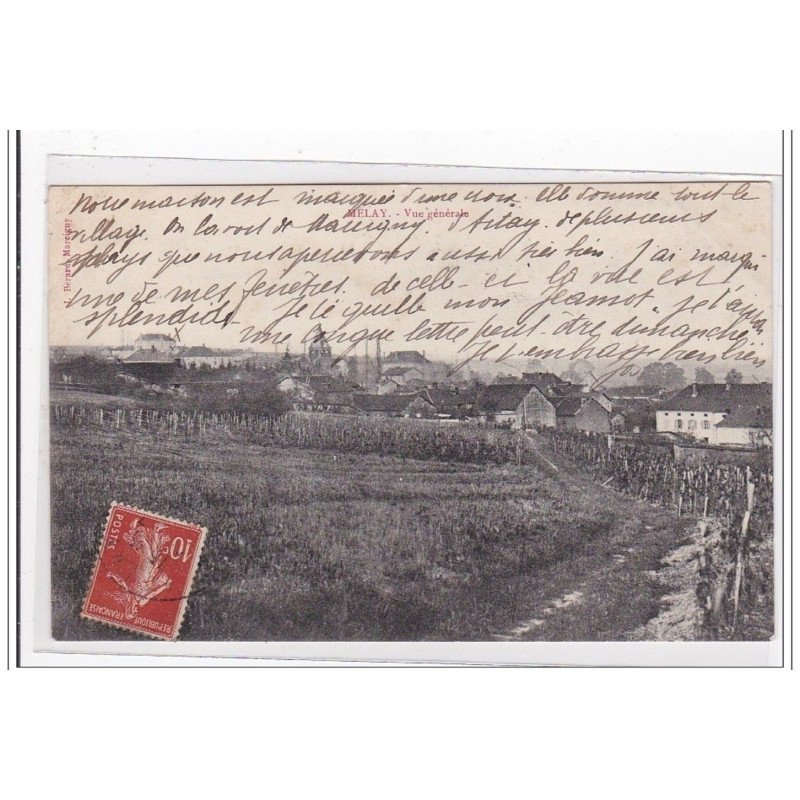 Notre maison est marquée d'une croix. Elle domine tout le
village. On la voit de Marcigny. d'Artay. de plusieurs
pays que nous apercevons aussi très bien. J'ai marqué
une de mes fenêtres. de celle-ci la vue est
splendide. Je te quitte mon Jeannot, je t'
une longue lettre peut-être dimanche
Je t'embrasse bien bien
MELAY. - Vue générale
Berard, Marcigny
POSTES
10c
RÉPUBLIQUE FRANÇAISE